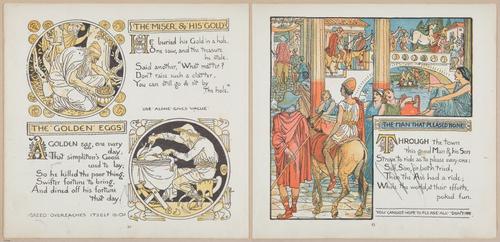 THE MISER, & HIS GOLD
He buried his Gold in a hole.
One saw, and the treasure
he stole.
Said another, "What matter?
Don't raise such a clatter,
You can still go & sit by
the hole."
USE ALONE GIVES VALUE
THE GOLDEN EGGS
A GOLDEN egg, one every
day,
That simpleton's Goose
used to lay;
So he killed the poor thing,
Swifter fortune to bring,
And dined off his fortune
that day.
GREED OVEREACHES ITSELF
THE MAN THAT PLEASED NONE
THROUGH the town
this good Man & his Son
Strove to ride as to please every one:
Self, Son, or both tried,
Then the Ass had a ride;
While the world, at their efforts,
poked fun.
YOU CANNOT HOPE TO PLEASE ALL—DON'T TRY